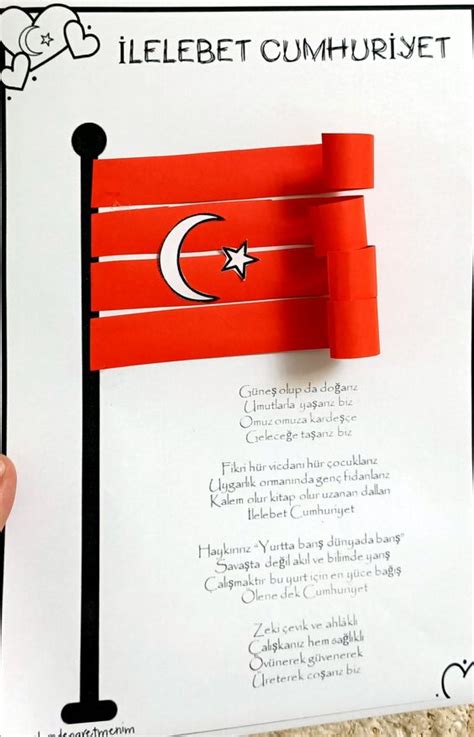 İLELEBET CUMHURİYET
Güneş olup da doğarız
Umutlarla yaşarız biz
Omuz omuza kardeşçe
Geleceğe taşarız biz
Fikri hür vicdanı hür çocuklarız
Uygarlık ormanında genç fidanlarız
Kalem olur kitap olur uzanan dalları
İlelebet Cumhuriyet
Haykırırız “Yurtta barış dünyada barış”
Savaşta değil akıl ve bilimde yarış
Çalışmaktır bu yurt için en yüce bağış
Ölene dek Cumhuriyet
Zeki çevik ve ahlaklı
Çalışkanız hem sağlıklı
Övünerek güvenerek
Üreterek coşarız biz